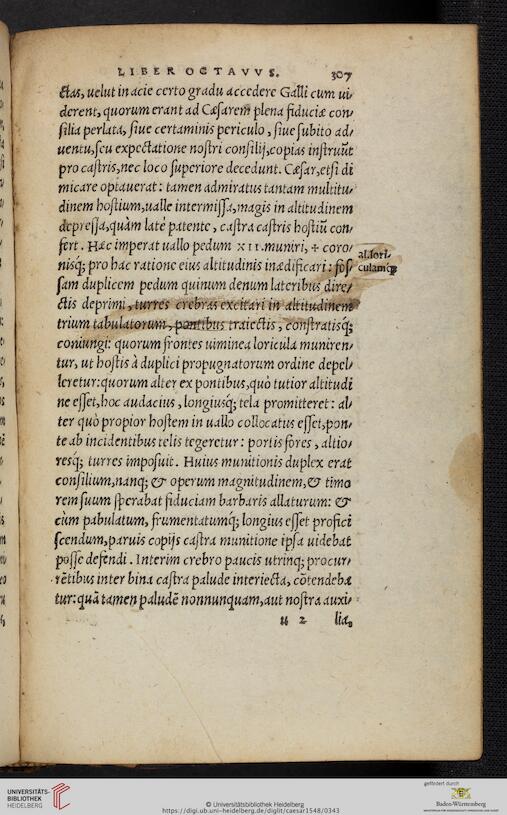 LIBER OCTAVVS. 307
ctas, uelut in acie certo gradu accedere Galli cum ui⸗
derent, quorum erant ad Cæsarem plena fiduciæ con⸗
silia perlata, siue certaminis periculo, siue subito ad⸗
uentu, seu expectatione nostri consilij, copias instruũt
pro castris, nec loco superiore decedunt. Cæsar, etsi di
micare optauerat: tamen admiratus tantam multitu⸗
dinem hostium, ualle intermissa, magis in altitudinem
depressa, quàm latè patente, castra castris hostiũ con⸗
fert. Hæc imperat uallo pedum XII. muniri, + coro⸗
nisq́; pro hac ratione eius altitudinis inædificari: fos⸗
al. lori⸗
culamq́;
sam duplicem pedum quinum denum lateribus dire⸗
ctis deprimi, turres crebras excitari in altitudinem
trium tabulatorum, pontibus traiectis, constratisq́;
coniungi: quorum frontes uiminea loricula muniren⸗
tur, ut hostis à duplici propugnatorum ordine depel⸗
leretur: quorum alter ex pontibus, quò tutior altitudi
ne esset, hoc audacius, longiusq́; tela promitteret: al⸗
ter quò propior hostem in uallo collocatus esset, pon⸗
te ab incidentibus telis tegeretur: portis fores, altio⸗
resq́; turres imposuit. Huius munitionis duplex erat
consilium, nanq; & operum magnitudinem, & timo
rem suum sperabat fiduciam barbaris allaturum: &
cùm pabulatum, frumentatumq́; longius esset profici
scendum, paruis copijs castra munitione ipsa uidebat
posse defendi. Interim crebro paucis utrinq; procur⸗
rẽtibus inter bina castra palude interiecta, cõtendeba
tur: quã tamen paludẽ nonnunquam, aut nostra auxi⸗
u 2 lia,
UNIVERSITÄTS-
BIBLIOTHEK
HEIDELBERG
© Universitätsbibliothek Heidelberg
https://digi.ub.uni-heidelberg.de/diglit/caesar1548/0343
gefördert durch
Baden-Württemberg